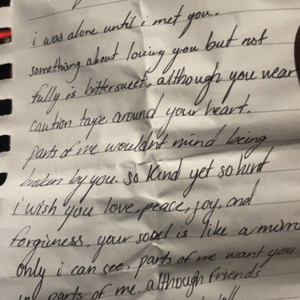 i was alone until i met you.
something about loving you but not
fully is bittersweet, although you wear
caution tape around your heart.
parts of me wouldnt mind being
broken by you. so kind yet so hurt
i wish you love, peace, joy, and
forgivness. your soul is like a mirror
only i can see. parts of me want you
in parts of me. although friends